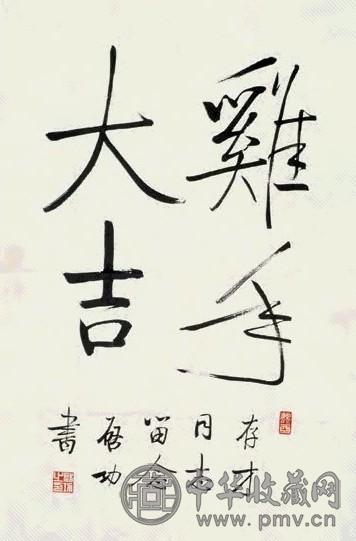 雞年
大吉
存才
同志
留念
启功
書
中华收藏网
www.pmv.cn